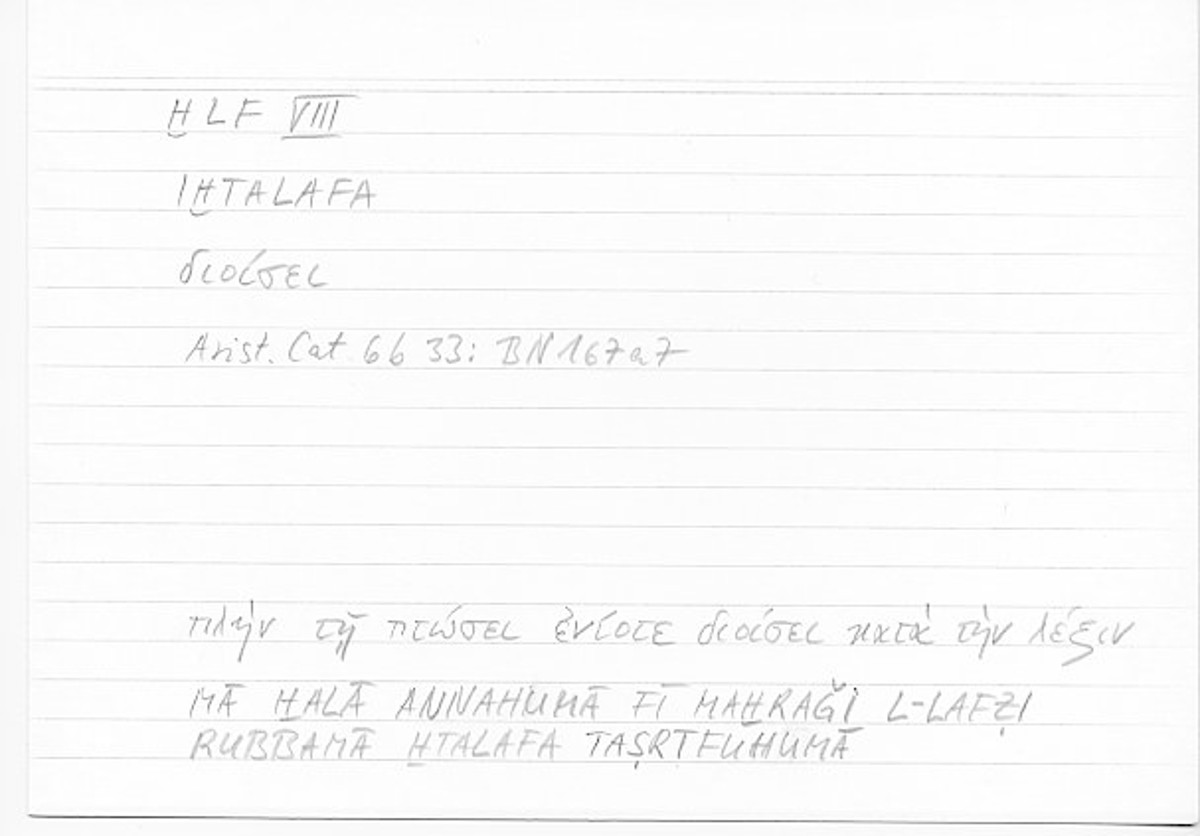 ḪLF VIII
IḪTALAFA
διοίσει
Arist. Cat 6b 33: BN 167a7
πλὴν τῇ πτώσει ἐνίοτε διοίσει κατὰ τὴν λέξιν
MĀ ḪALĀ ANNAHUMĀ FĪ MAḪRAǦI L-LAFẒI
RUBBAMĀ ḪTALAFA TAṢRĪFUHUMĀ